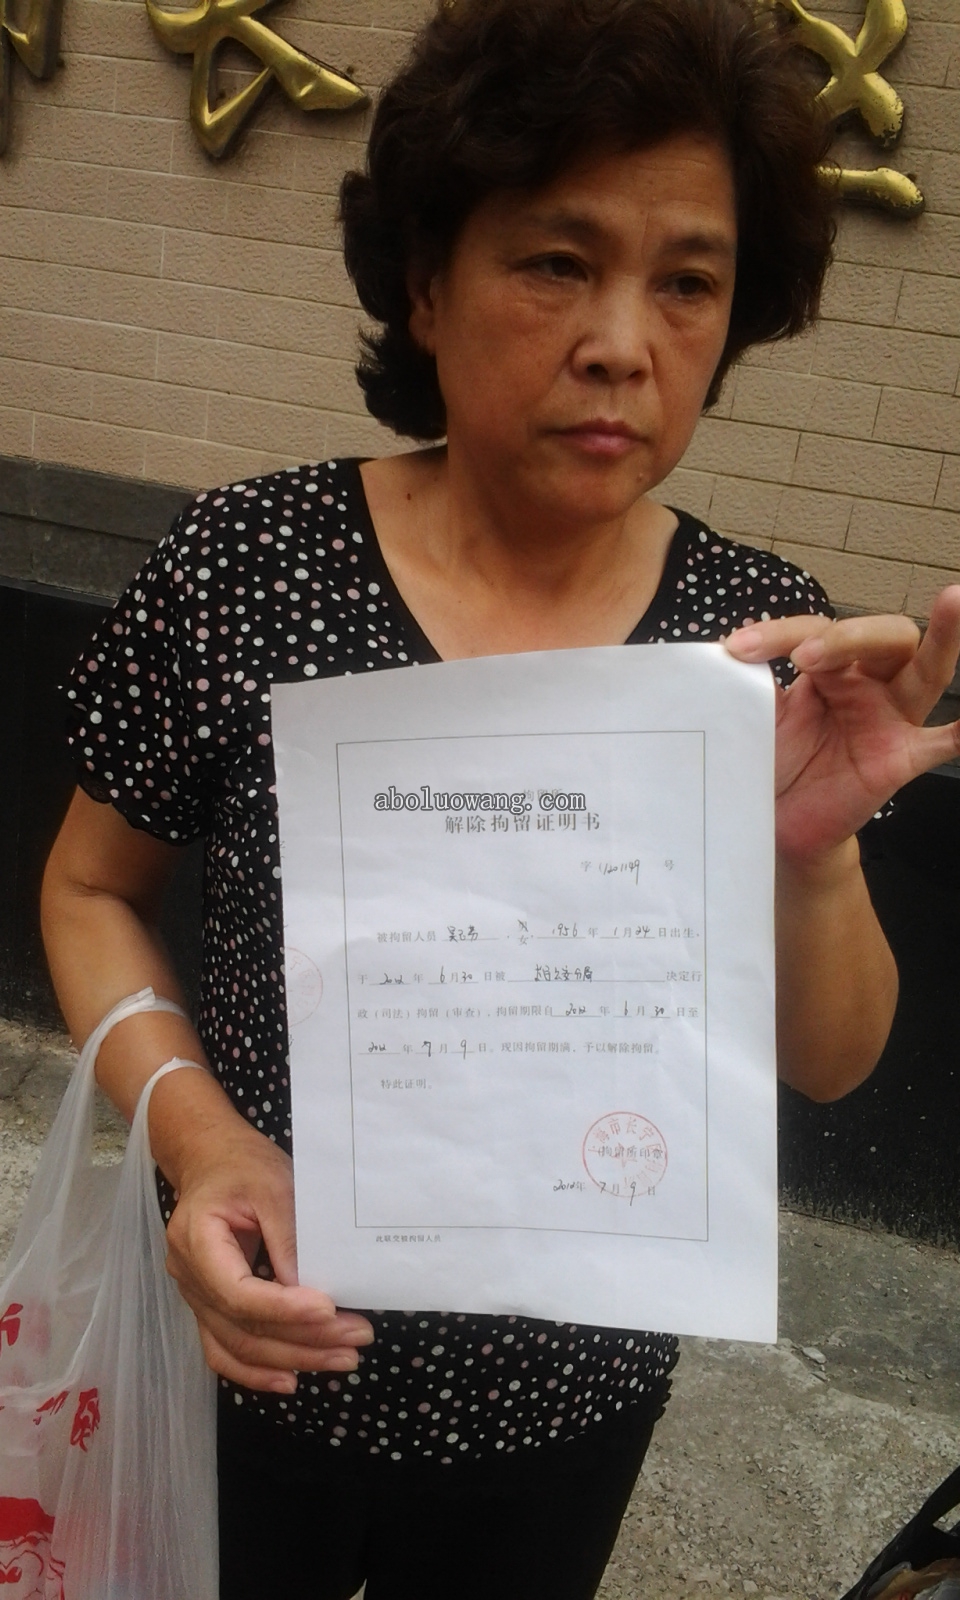 aboluowang. com
解除拘留证明书
字 1201149 号
被拘留人员 , 女, 1956 年 1 月 24 日出生,
于 2012 年 6 月 30 日被 公安分局 决定行
政（司法）拘留（审查），拘留期限自 2012 年 6 月 30 日至
2012 年 7 月 9 日。现因拘留期满，予以解除拘留。
特此证明。
上海市长宁
（拘留所印章
2012年 7 月 9 日
此联交被拘留人员